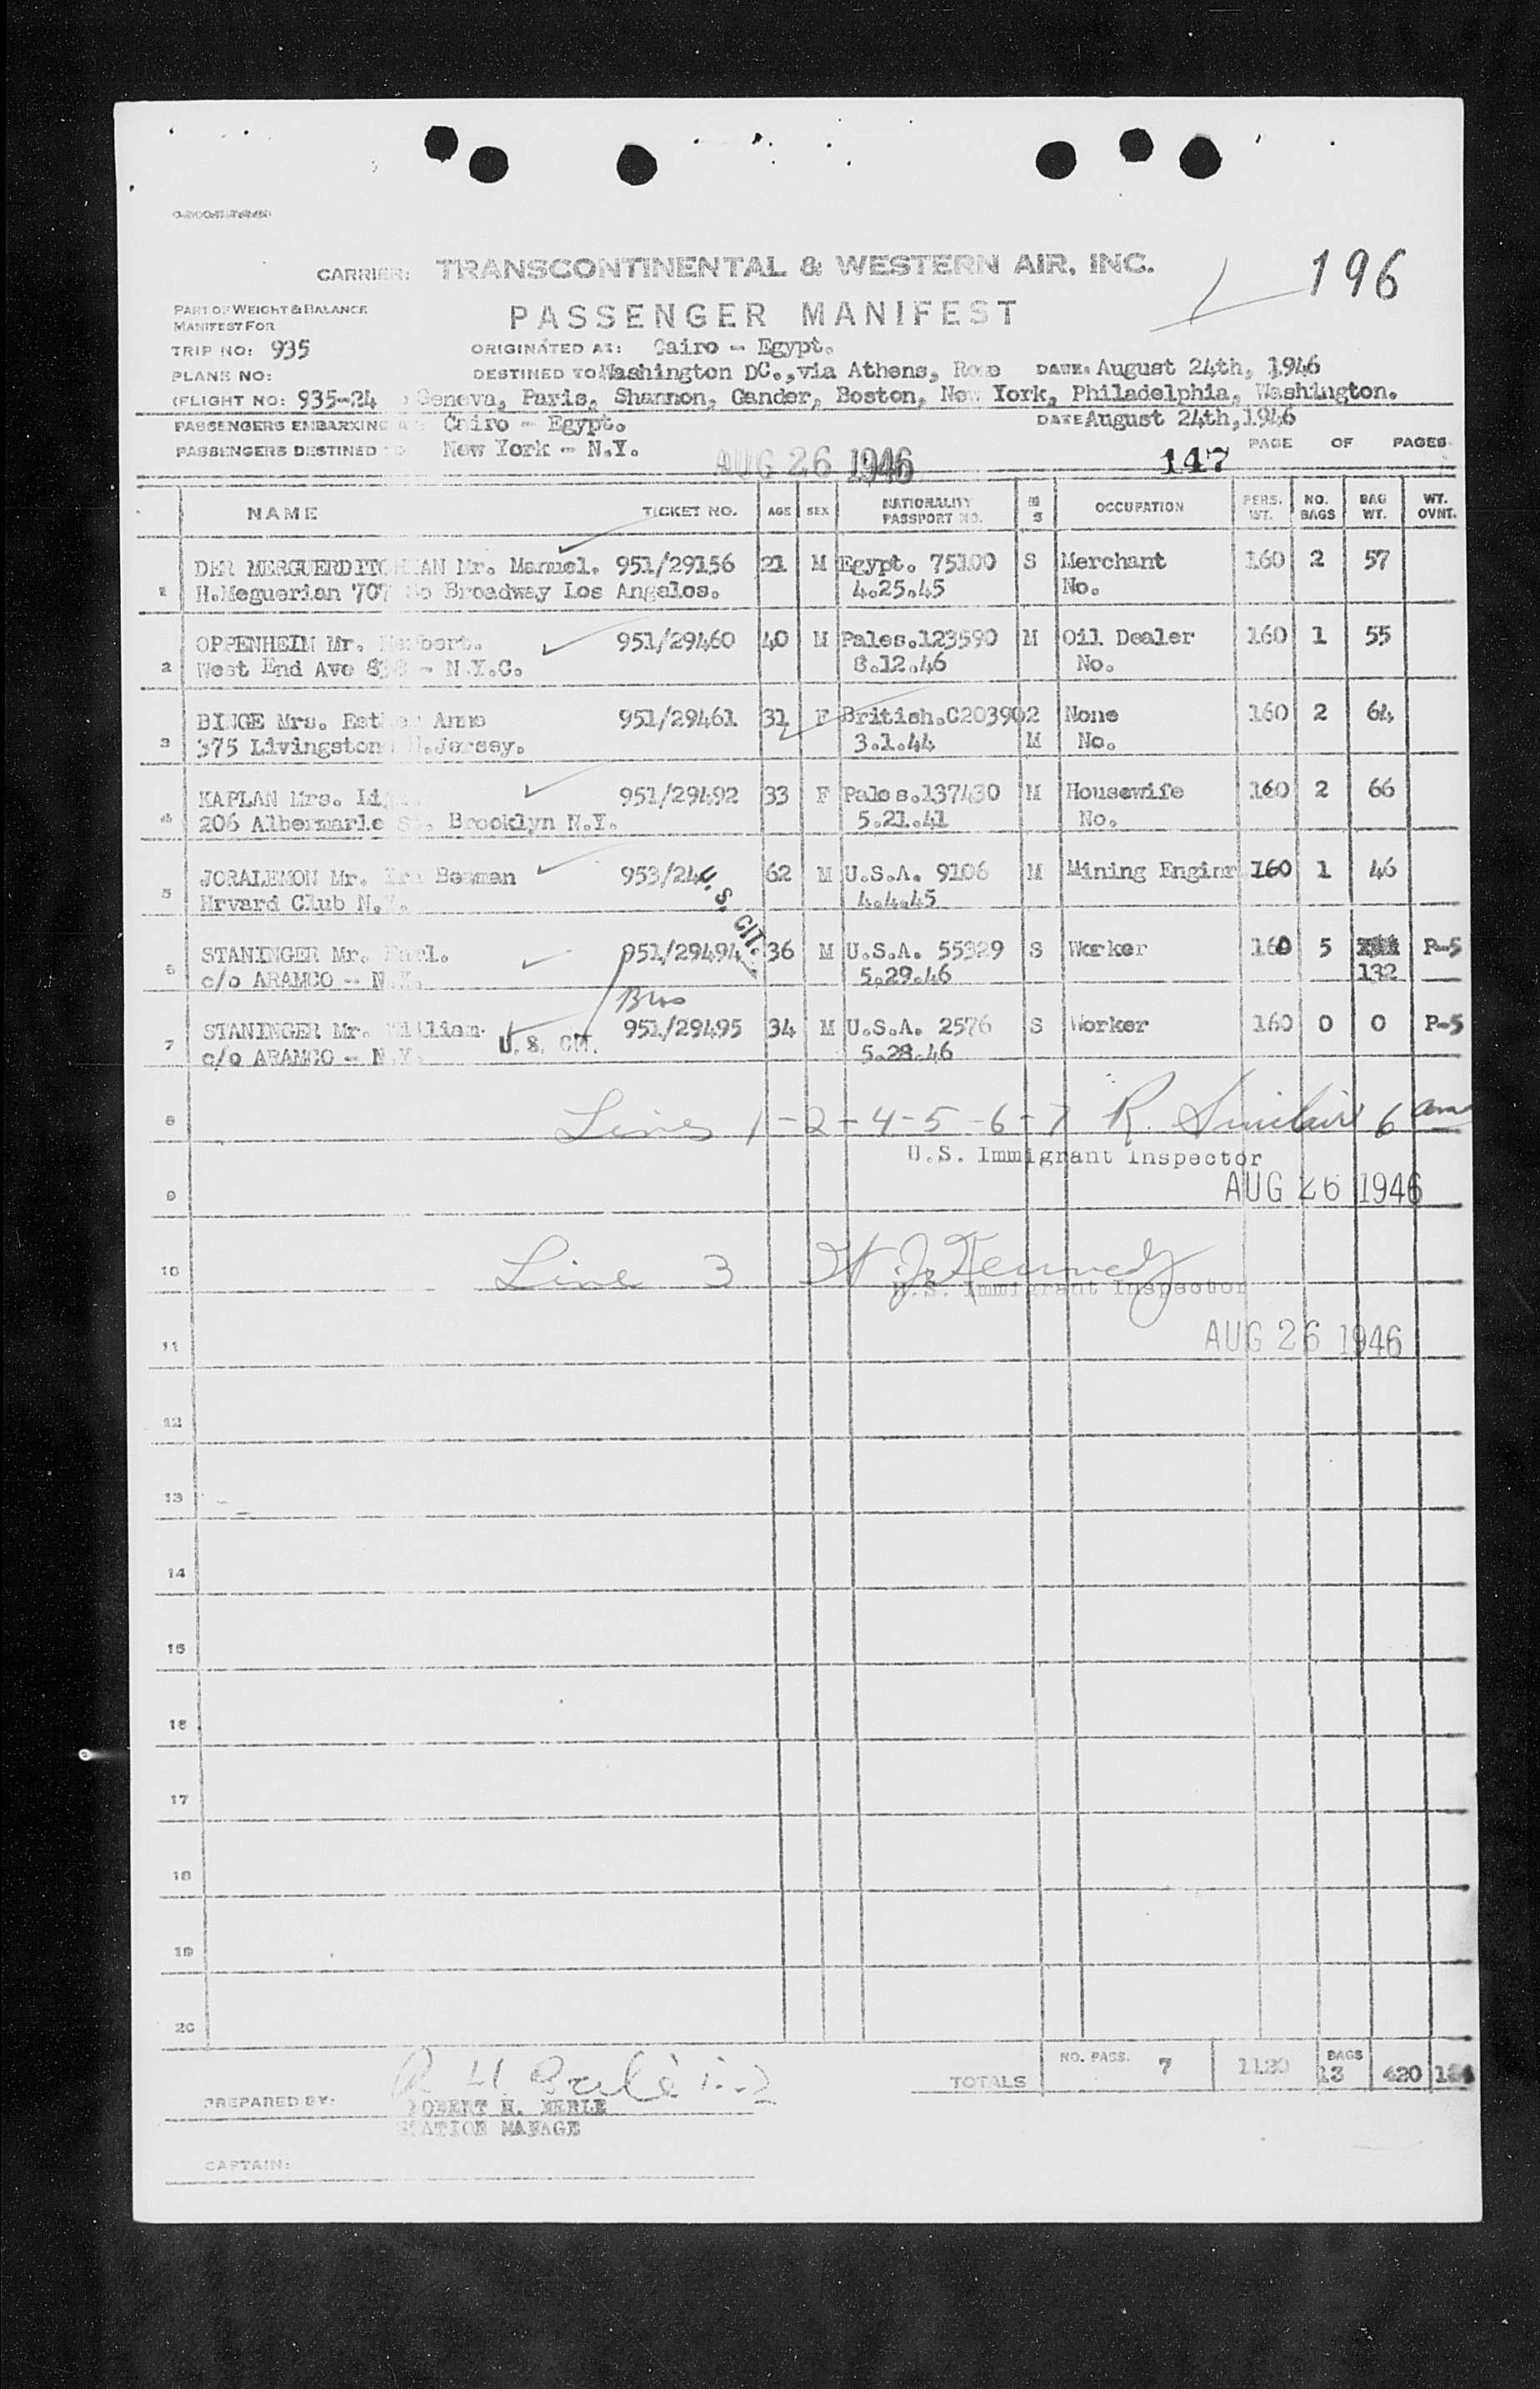 CARRIER: TRANSCONTINENTAL & WESTERN AIR, INC.
196
PART OF WEIGHT & BALANCE
MANIFEST FOR
PASSENGER MANIFEST
TRIP NO: 935 ORIGINATED AT: Cairo - Egypt.
PLANE NO: DESTINED TO: Washington DC., via Athens, Rome DATE: August 24th, 1946
(FLIGHT NO: 935-24 Geneva, Paris, Shannon, Gander, Boston, New York, Philadelphia, Washington.
PASSENGERS EMBARKING AT: Cairo - Egypt. DATE August 24th, 1946
PASSENGERS DESTINED TO New York - N.Y. AUG 26 1946 147 PAGE OF PAGES
NAME TICKET NO. AGE SEX NATIONALITY PASSPORT NO. M S OCCUPATION PERS. WT. NO. BAGS BAG WT. WT. OVNT.
1 DER MERGUERDITCHIAN Mr. Manuel. 951/29156 21 M Egypt. 75100 S Merchant 160 2 57
H.Meguerian 707 So Broadway Los Angelos. 4.25.45 No.
2 OPPENHEIM Mr. Herbert. 951/29460 40 M Pales.123590 M Oil Dealer 160 1 55
West End Ave - N.Y.C. 8.12.46 No.
3 BINGE Mrs. Esther Anne 951/29461 31 F British.C203902 None 160 2 64
375 Livingston N.Jersey. 3.1.44 M No.
4 KAPLAN Mrs. 951/29492 33 F Pales.137430 M Housewife 160 2 66
206 Albermarle St. Brooklyn N.Y. 5.21.41 No.
5 JORALEMON Mr. Ira Bowman 953/24 U.S. CIT. 62 M U.S.A. 9106 M Mining Enginr 160 1 46
Hrvard Club N.Y. 4.4.45
6 STANINGER Mr. Earl. 951/29494 36 M U.S.A. 55329 S Worker 160 5 P-5
c/o ARAMCO - N.Y. 5.29.46 132
Bros
7 STANINGER Mr. William 951/29495 34 M U.S.A. 2576 S Worker 160 0 0 P-5
c/o ARAMCO - N.Y. U.S. CIT. 5.28.46
8 Lines 1-2-4-5-6-7 R. Sinclair 6 am
U.S. Immigrant Inspector
9 AUG 26 1946
10 Line 3 H. J. Kennedy
U.S. Immigrant Inspector
11 AUG 26 1946
12
13
14
15
16
17
18
19
20
TOTALS NO. PASS. 7 1120 BAGS 13 420
PREPARED BY:
ROBERT H. EERLE
STATION MANAGE
CAPTAIN: